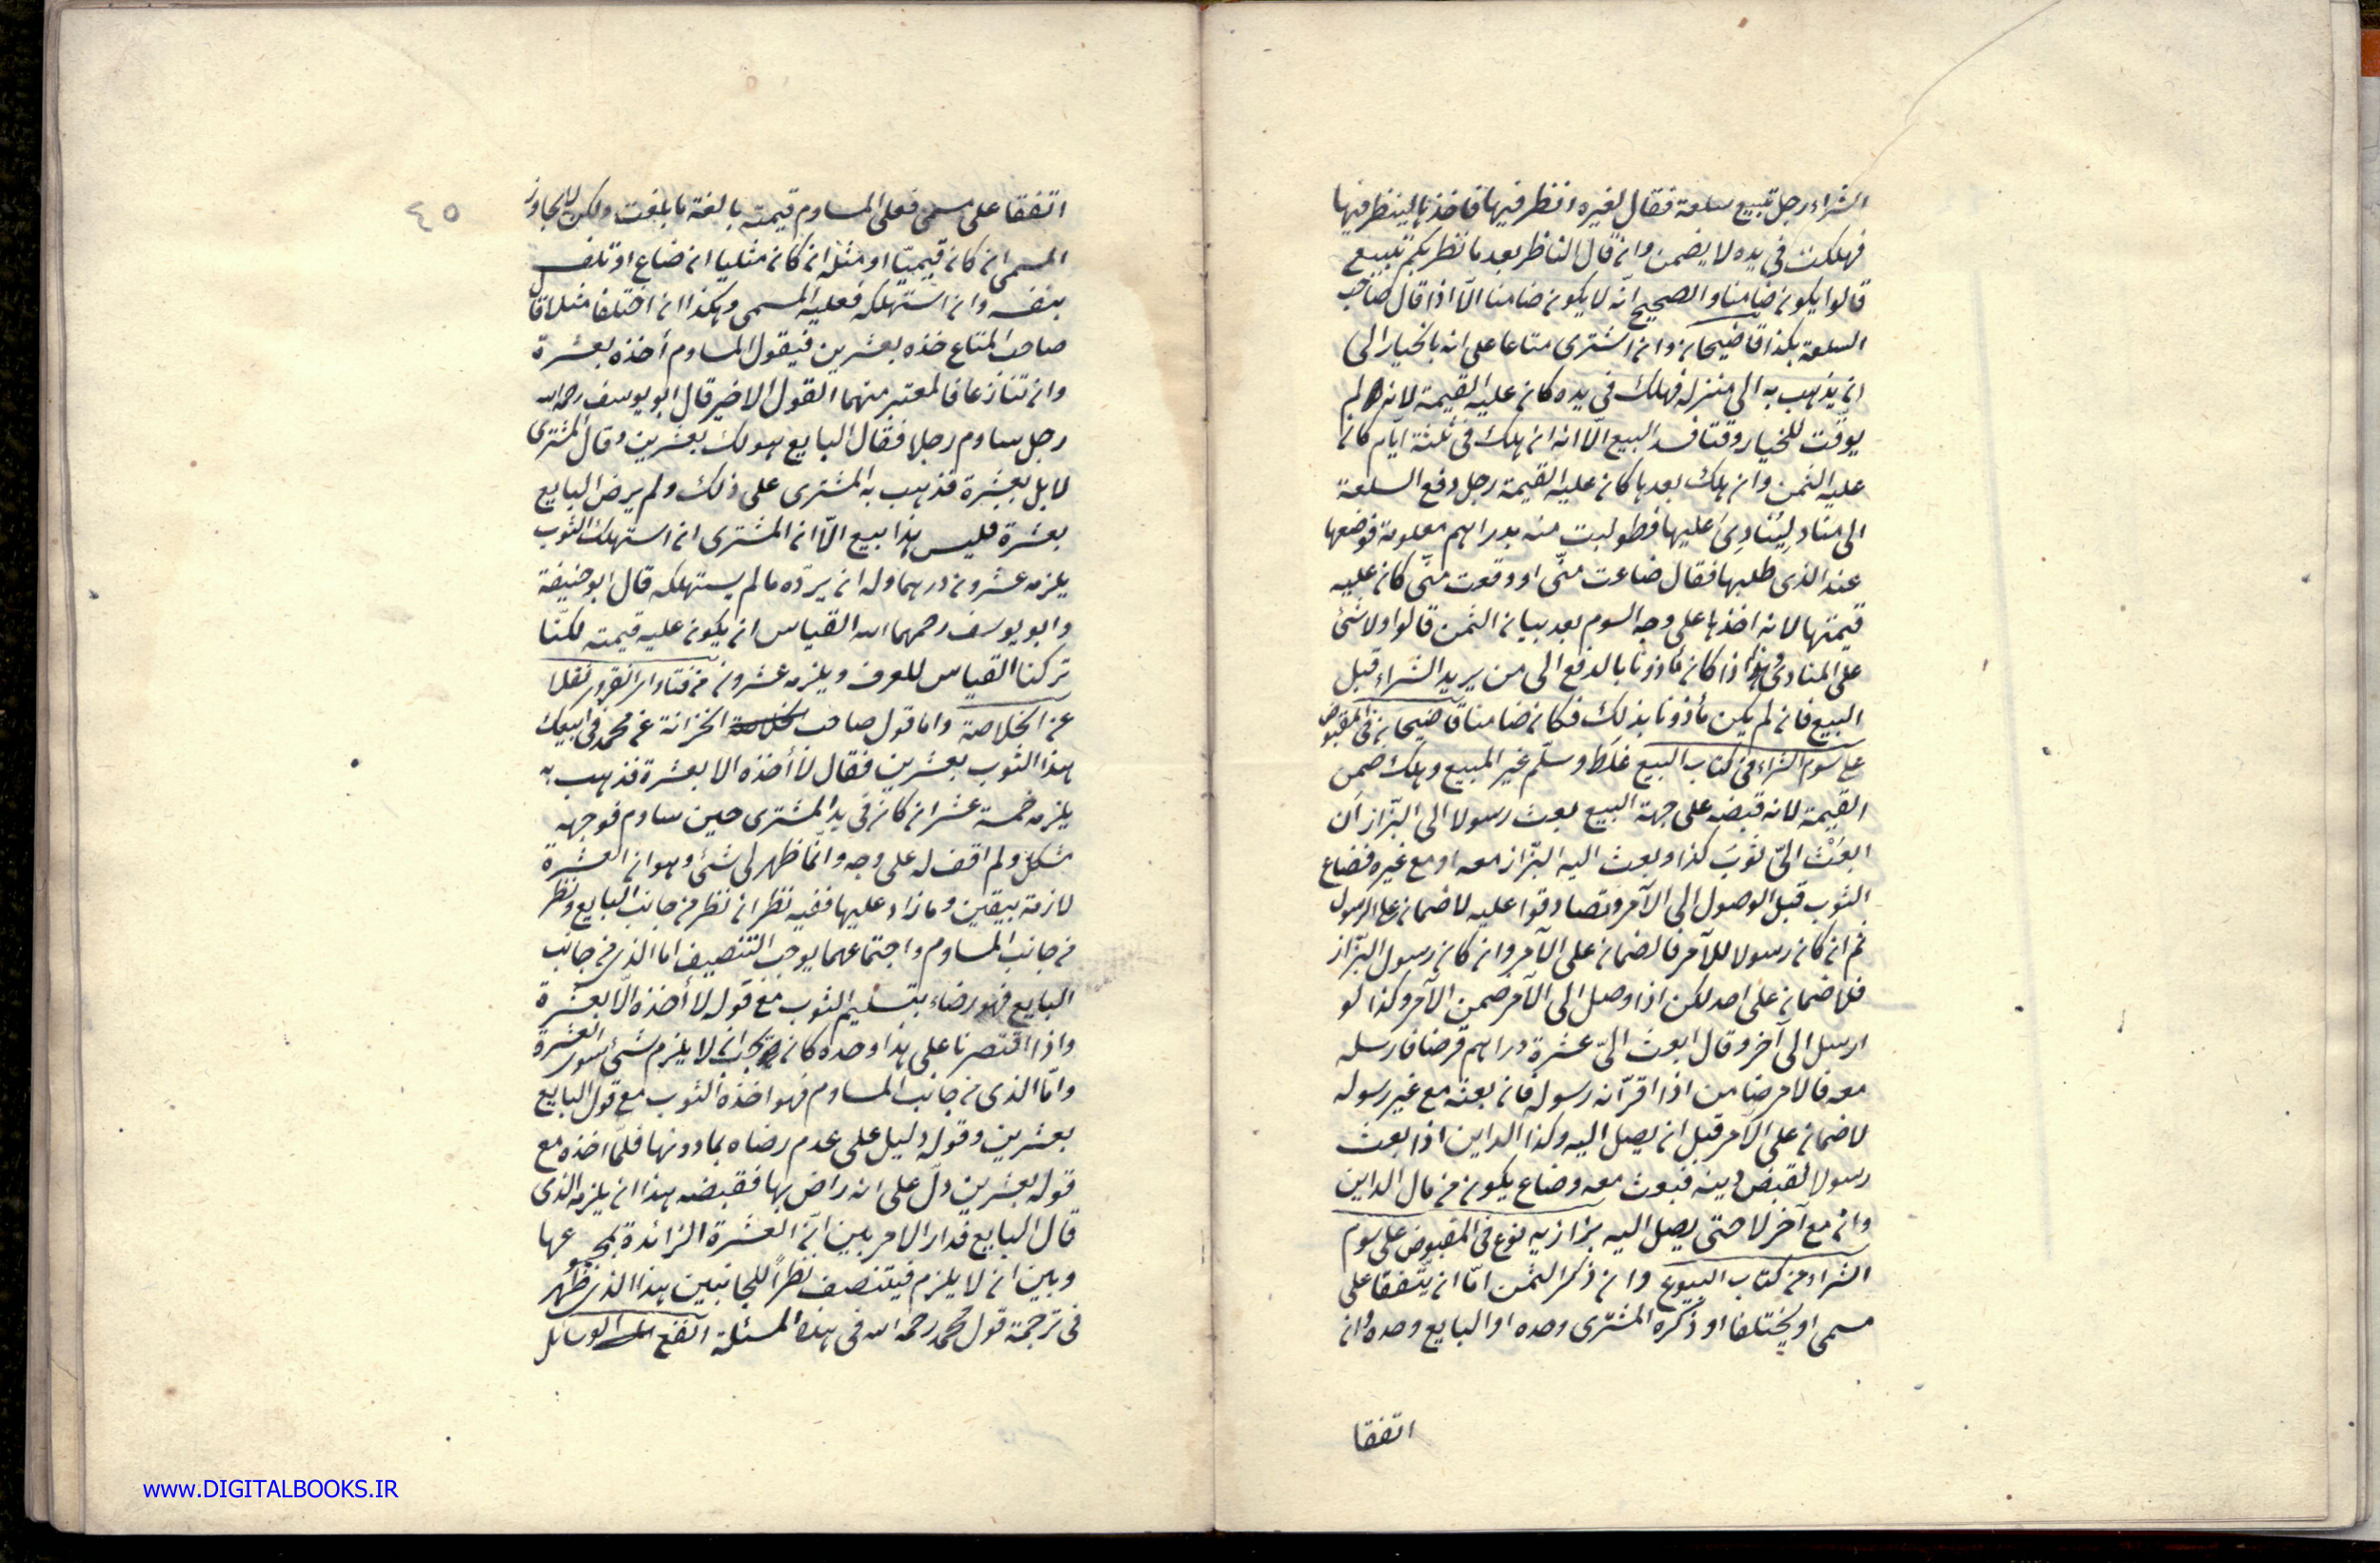 الشراء رجل يبيع سلعة فقال لغيره انظر فيها فاخذها لينظر فيها
فهلكت فى يده لا يضمن وان قال الناظر بعد ما نظر بكم تبيع
قالوا يكون ضامنا والصحيح انّه لا يكون ضامنا الّا اذا قال صاحب
السلعة بكذا قاضيخان وان اشترى متاعا على انه بالخيار الى
ان يذهب به الى منزله فهلك فى يده كان عليه القيمة لانه لم
يوقّت للخيار وقتا فسد البيع الّا انه ان هلك فى ثلثة ايّام كان
عليه الثمن وان هلك بعدها كان عليه القيمة رجل دفع السلعة
الى مناد لِيُنَادِىَ عليها فطولبت منه بدراهم معلومة فوضعها
عند الذى طلبها فقال ضاعت منّى او وقعت منّى كان عليه
قيمتها لانه اخذها على وجه السوم بعد بيان الثمن قالوا ولا شئ
على المنادى وهذا اذا كان مأذونا بالدفع الى من يريد الشراء قبل
البيع فان لم يكن مأذونا بذلك فكان ضامنا قاضيخان فى المقبوض
على سوم الشراء فى كتاب البيع غلط وسلّم غير المبيع وهلك ضمن
القيمة لانه قبضه على جهة البيع بعث رسولا الى البزّاز أن
ابعَثْ الىّ ثوبَ كذا وبعث اليه البزّاز معه او مع غيره فضاع
الثوب قبل الوصول الى الآمر وتصادقوا عليه لا ضمان على الرسول
ثم ان كان رسولا للآمر فالضمان على الآمر وان كان رسول البزّاز
فلا ضمان على احد لكن اذا وصل الى الآمر ضمن الآمر وكذا لو
ارسل الى آخر وقال ابعث الىّ عشرة دراهم قرضا فارسله
معه فالامر ضامن اذا اقرّ انه رسوله فان بعثه مع غير رسوله
لا ضمان على الآمر قبل ان يصل اليه وكذا الداين اذا بعث
رسولا لقبض دينه فبعث معه وضاع يكون من مال الداين
وان مع آخر لا حتى يصل اليه بزازيه نوع فى المقبوض على سوم
الشراء من كتاب البيوع وان ذكر الثمن امّا ان يتّفقا على
مسمى او يختلفا او ذكره المشترى وحده او البايع وحده وان
اتفقا
٤٥
اتفقا على مسمى فعلى المساوم قيمته بالغة ما بلغت ولكن لا يجاوز
المسمى ان كان قيميّا او مثله ان كان مثليا ان ضاع او تلف
بنفسه وان استهلكه فعليه المسمى وهكذا ان اختلفا مثلا قال
صاحب المتاع خذه بعشرين فيقول المساوم أخذه بعشرة
وان تنازعا فالمعتبر منهما القول الاخير قال ابو يوسف رحمه الله
رجل ساوم رجلا فقال البايع هو لك بعشرين وقال المشترى
لا بل بعشرة فذهب به المشترى على ذلك ولم يرض البايع
بعشرة فليس هذا بيع الّا ان المشترى ان استهلك الثوب
يلزمه عشرون درهما وله ان يردّه ما لم يستهلكه قال ابو حنيفة
وابو يوسف رحمهما الله القياس ان يكون عليه قيمته لكنّا
تركنا القياس للعرف ويلزمه عشرون من فتاوا انقروى نقلا
عن الخلاصة واما قول صاحب الخزانة عن محمد فى ابيعك
هذا الثوب بعشرين فقال لا أخذه الا بعشرة فذهب به
يلزمه خمسة عشر ان كان فى يد المشترى حين ساوم فوجهه
مشكل ولم اقف له على وجه وانّما ظهر لى شئ وهو ان العشرة
لازمة بيقين وما زاد عليها ففيه نظر ان نظر من جانب البايع ونظر
من جانب المساوم واجتماعهما يوجب التنصيف اما الذى من جانب
البايع فهو رضاء بتسليم الثوب مع قوله لا أخذه الّا بعشرة
واذا اقتصرنا على هذا وحده كان يجب ان لا يلزم شئ سوى العشرة
وامّا الذى من جانب المساوم فهو اخذه الثوب مع قول البايع
بعشرين وقوله دليل على عدم رضاه بما دونها فلمّا اخذه مع
قوله بعشرين دلّ على انه راض بها فقبضه هذا ان يلزمه الذى
قال البايع فدار الامر بين انّ العشرة الزائدة بمجموعها
وبين ان لا يلزم فيتنصف نظرًا للجانبين هذا الذى ظهر
فى ترجمة قول محمد رحمه الله فى هذه المسئلة انفع الوسائل
www.DIGITALBOOKS.IR